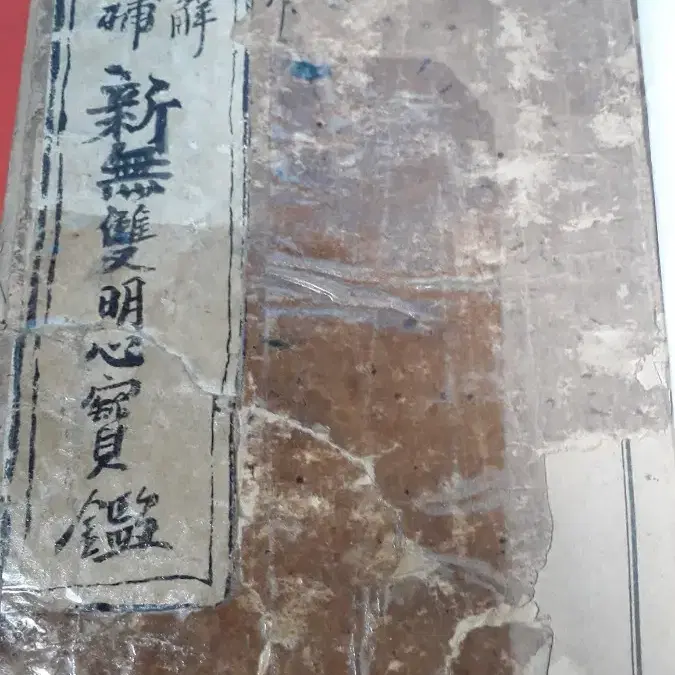 解
補
新無雙明心寶鑑